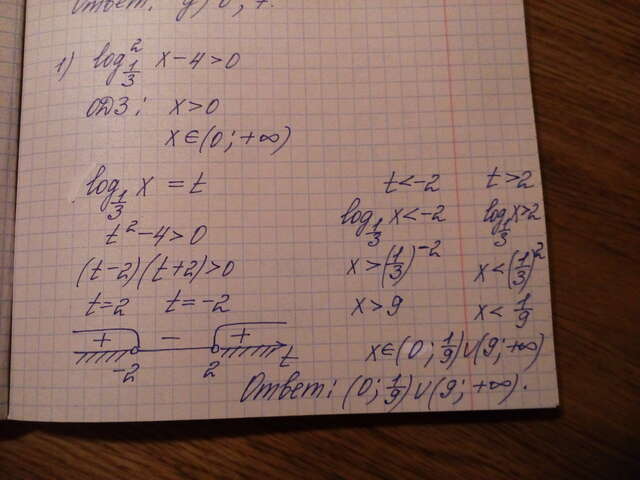 Ответ:
1) log²_{1/3} x - 4 > 0
ОДЗ: x > 0
x ∈ (0; +∞)
log_{1/3} x = t
t² - 4 > 0
(t-2)(t+2) > 0
t = 2 t = -2
+ - +
-2 2 t
t < -2 t > 2
log_{1/3} x < -2 log_{1/3} x > 2
x > (1/3)^{-2} x < (1/3)²
x > 9 x < 1/9
x ∈ (0; 1/9) ∪ (9; +∞)
Ответ: (0; 1/9) ∪ (9; +∞).